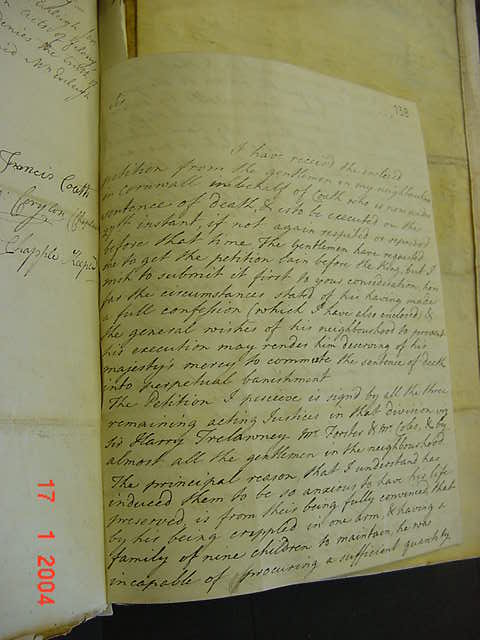 Francis Couth
Coryton
Chapple Keeper
Sir
158
I have received the inclosed
petition from the gentlemen in my neighbourhood
in Cornwall in behalf of Couth who is now under
sentence of death, & is to be executed on the
27th instant, if not again respited or reprieved
before that time. The gentlemen have requested
me to get the petition lain before the King, but I
wish to submit it first to your consideration how
far the circumstances stated of his having made
a full confession (which I have also inclosed) &
the general wishes of his neighbourhood to prevent
his execution may render him deserving of his
majesty's mercy to commute the sentence of death
into perpetual banishment
The Petition I perceive is signd by all the three
remaining acting Justices in that division
Sir Harry Trelawney Mr. Forster & Mr. Coles, & by
almost all the gentlemen in the neighbourhood
The principal reason that I understand has
induced them to be so anxious to have his life
preserved is from their being fully convinced that
by his being crippled in one arm, & having a
family of nine children to maintain, he was
incapable of procuring a sufficient quantity
17 1 2004